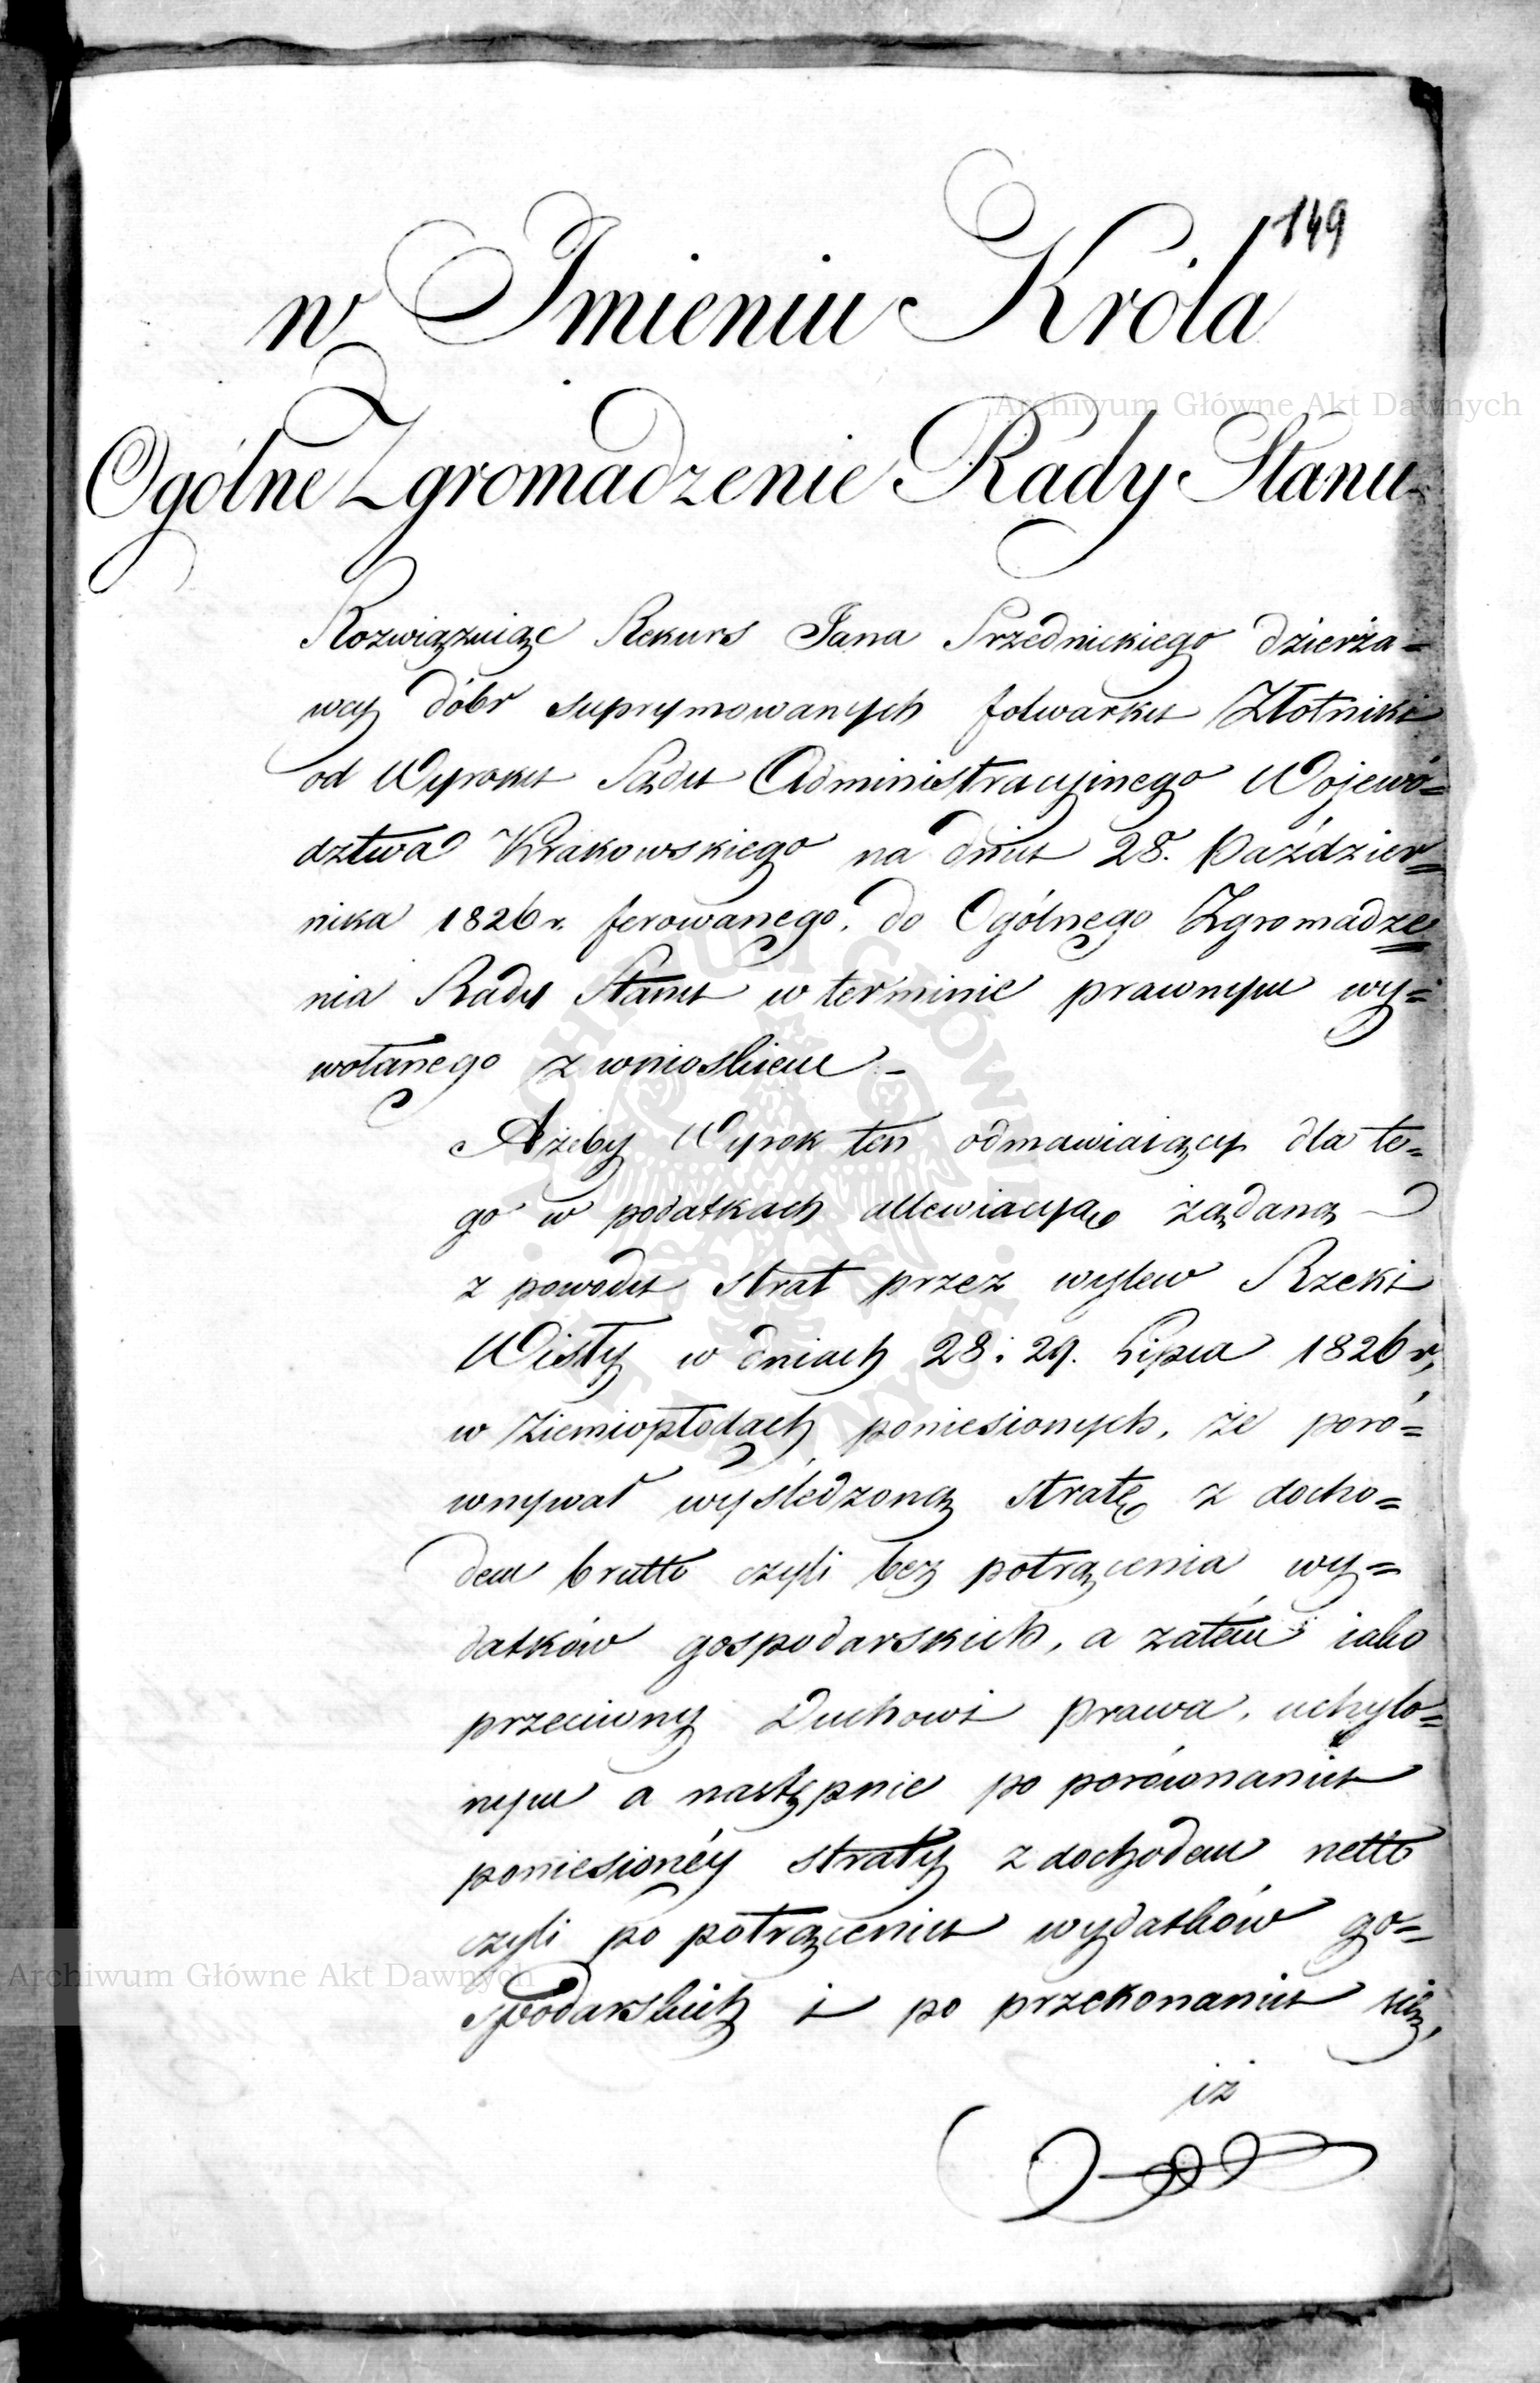 149
w Imieniu Króla
Ogólne Zgromadzenie Rady Stanu
Rozwiązuiąc Rekurs Jana Przednickiego dzierża=
wcy dóbr suprymowanych folwarku Złotniki
od Wyroku Sądu Administracyinego Wojewó=
dztwa Krakowskiego na dniu 28. Paździer=
nika 1826 r. ferowanego, do Ogólnego Zgromadze=
nia Rady Stanu w terminie prawnym wy=
wołanego z wnioskiem –
Ażeby Wyrok ten odmawiaiący dla te=
go w podatkach allewiacyą żądaną
z powodu strat przez wylew Rzeki
Wisły w dniach 28 i 29. Lipca 1826 r,
w Ziemiopłodach poniesionych, że poró=
wnywał wyśledzoną stratę z docho=
dem brutto czyli bez potrącenia wy=
datków gospodarskich, a zatém iako
przeciwny Duchowi prawa, uchylo=
nym a następnie po porównaniu
poniesionéy straty z dochodem netto
czyli po potrąceniu wydatków go=
spodarskich i po przekonaniu się,
iż
Archiwum Główne Akt Dawnych
Archiwum Główne Akt Dawnych